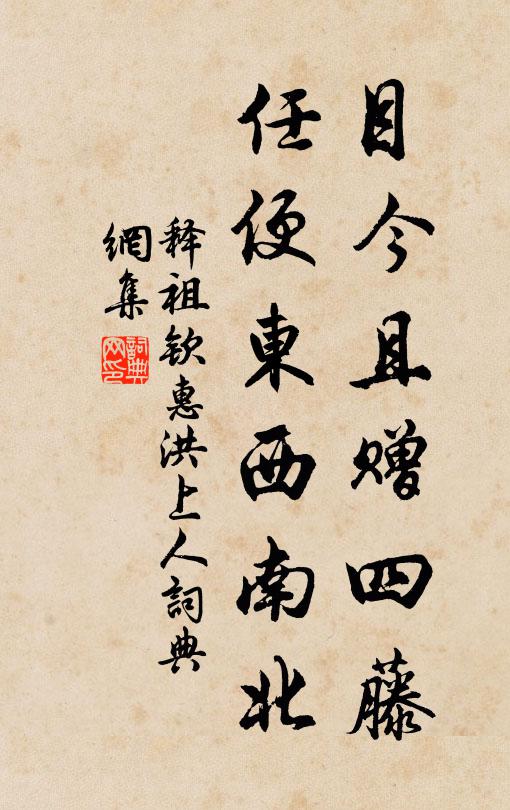 目今且赠四藤
任便東西南北
释祖钦惠洪上人詞典
網集
詞典
网印